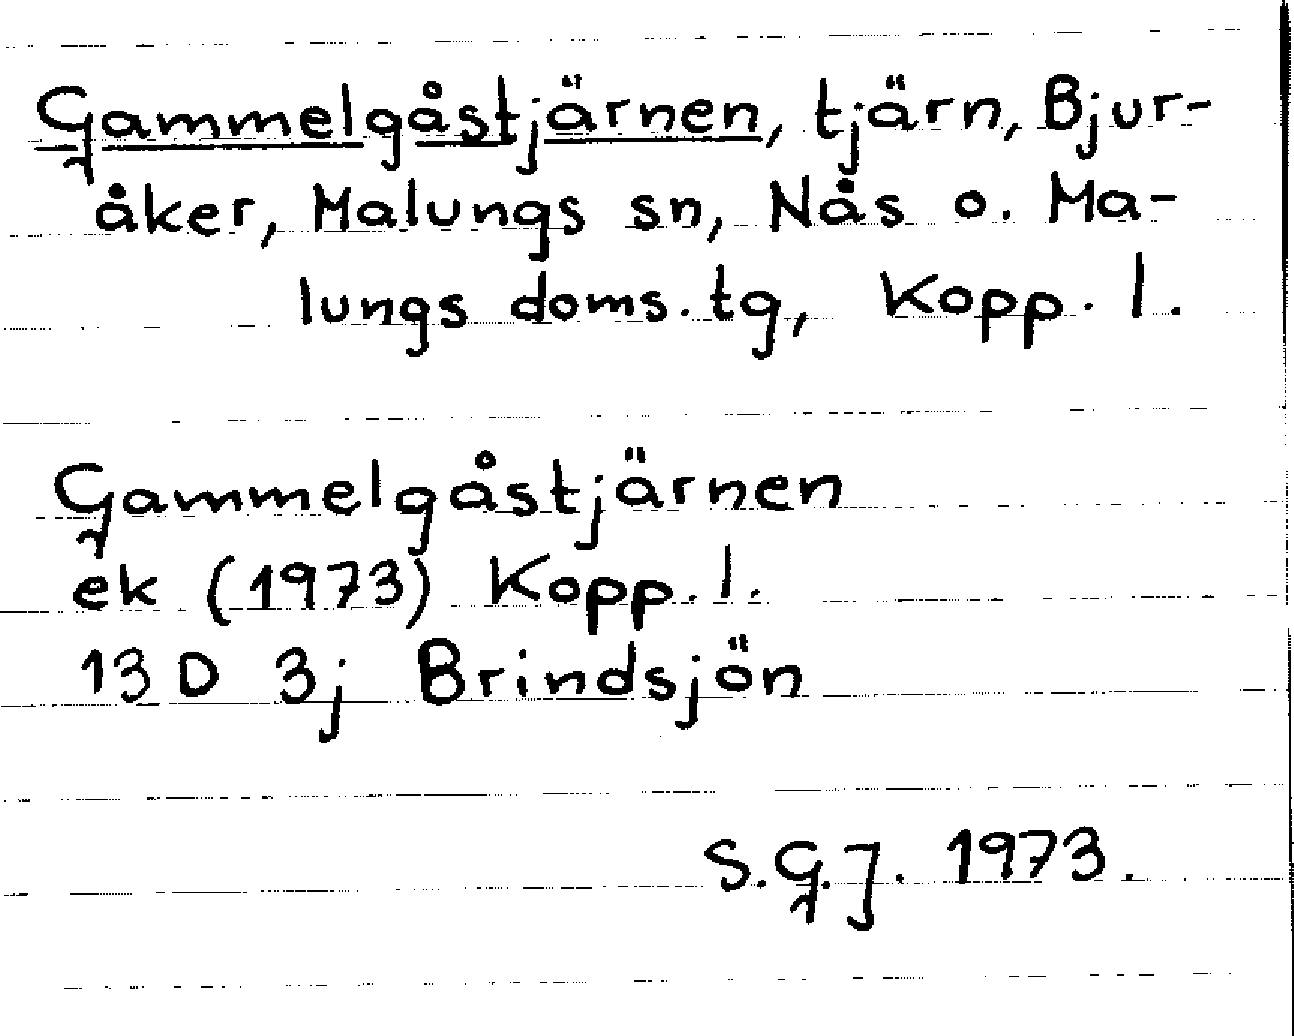 Gammelgåstjärnen, tjärn, Bjur-
åker, Malungs sn, Nås o. Ma-
lungs doms.tg, Kopp. l.
Gammelgåstjärnen
ek (1973) Kopp. l.
13 D 3j Brindsjön
S.G.J. 1973.